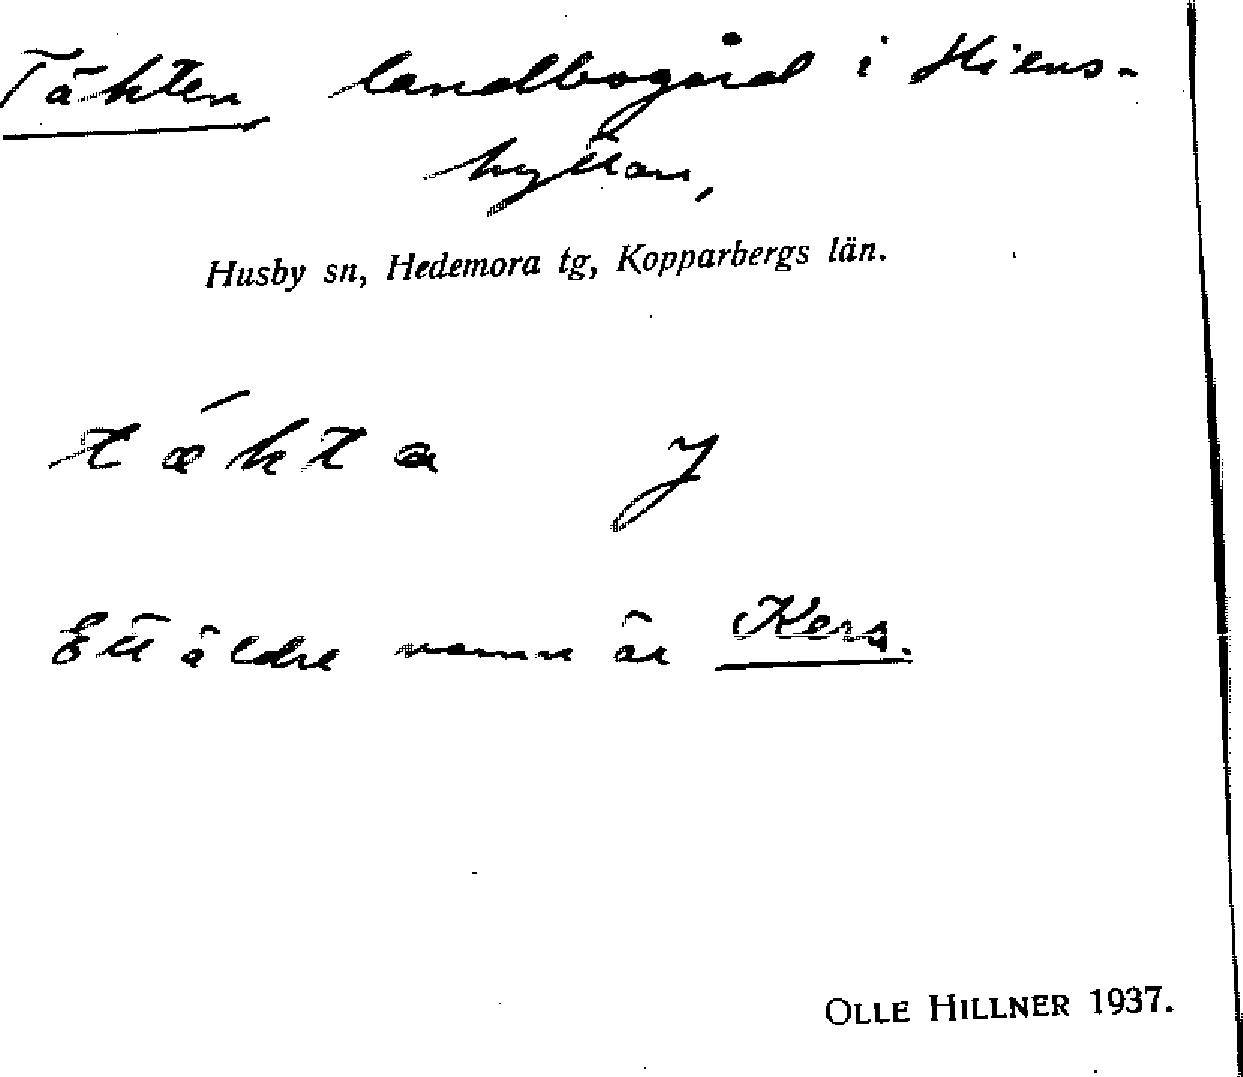 Täkten landbogård i Stiens-
hyttan,
Husby sn, Hedemora tg, Kopparbergs län.
tǽkta J
Ett äldre namn är Kers.
OLLE HILLNER 1937.